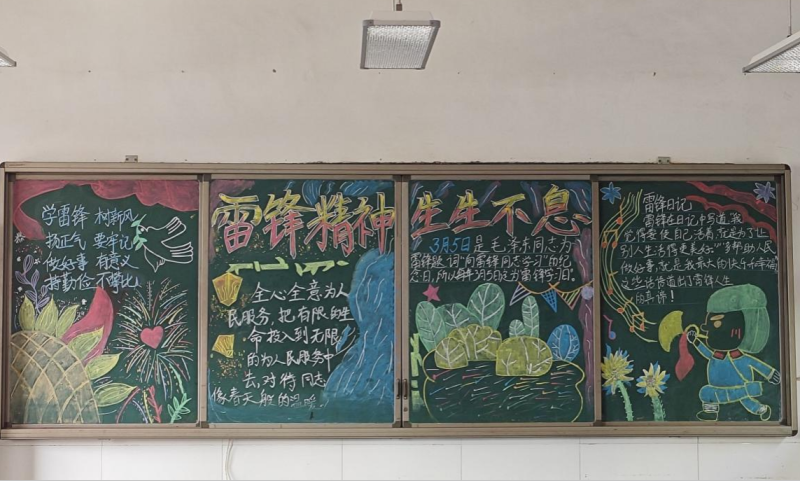 学雷锋 树新风
扬正气 要牢记
做好事 有意义
勤俭 不攀比
雷锋精神
全心全意为人
民服务,把有限的生
命投入到无限
的为人民服务中
去,对待同志
像春天般的温暖
生生不息
3月5日是毛泽东同志为
雷锋题词"向雷锋同志学习"的纪
念日,所以每年3月5日定为雷锋学习日。
雷锋日记
雷锋在日记中写道:我
觉得要使自己活着,就是为了让
别人生活得更美好""帮助人民
做好事,就是我最大的快乐和幸福
这些话语道出了雷锋人生
的真谛!